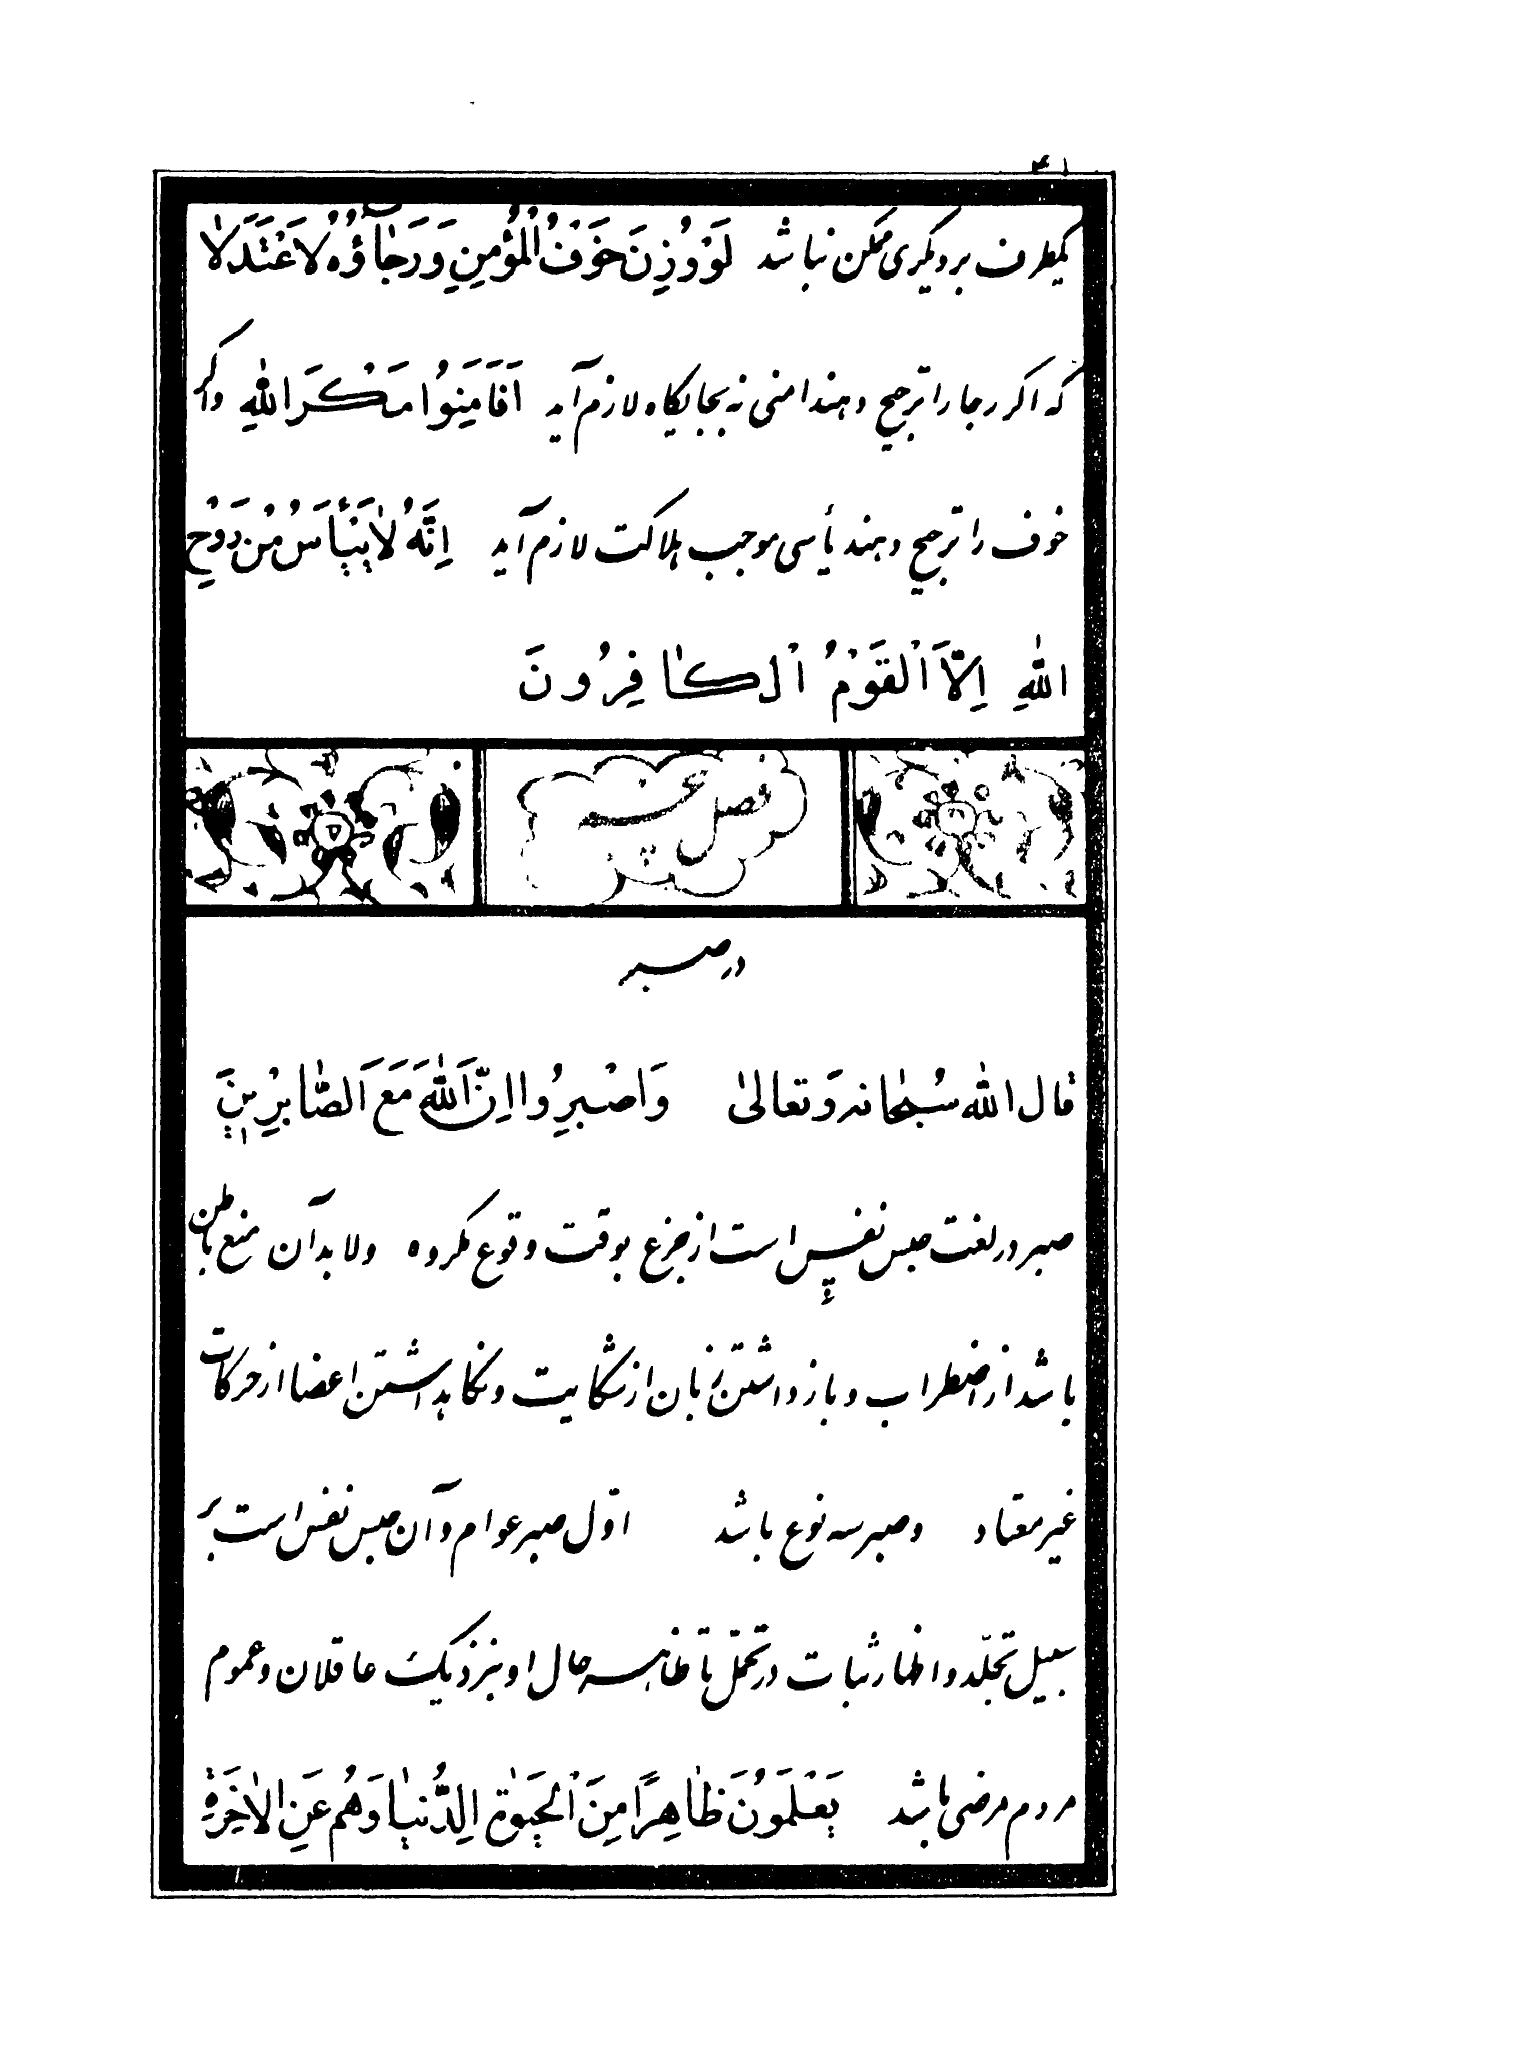 ۴۱
یکطرف بر دیگری ممکن نباشد لَوْ وُزِنَ خَوْفُ الْمُؤْمِنِ وَ رَجٰاۤؤُهُ لَاعْتَدَلَاٰ
که اگر رجا را ترجیح دهند امنی نه بجایگاه لازم آید اَفَاَمِنُوا مَکْرَ اللّٰهِ واگر
خوف را ترجیح دهند یأسی موجب هلاکت لازم آید اِنَّهُ لاٰ یَیْأَسُ مِنْ رَوْحِ
اللّٰهِ اِلَّا الْقَوْمُ الْکٰافِرُونَ
فصل پنجم
در صبر
قال اللّٰه سُبْحٰانه وَ تعالیٰ وَاصْبِرُوا اِنَّ اللّٰهَ مَعَ الصّٰابِرِینَ
صبر در لغت حبس نفس است از جزع بوقت وقوع مکروه ولابد آن منع باطن
باشد از اضطراب و بازداشتن زبان از شکایت و نگاهداشتن اعضا از حرکات
غیر معتاد و صبر سه نوع باشد اوّل صبر عوام و آن حبس نفس است بر
سبیل تجلّد و اظهار ثبات در تحمّل تا ظاهر حال او بنزدیک عاقلان و عموم
مردم مرضی باشد یَعْلَمُونَ ظٰاهِرًا مِنَ الْحَیٰوةِ الدُّنْیٰا وَهُمْ عَنِ الْاٰخِرَةِ